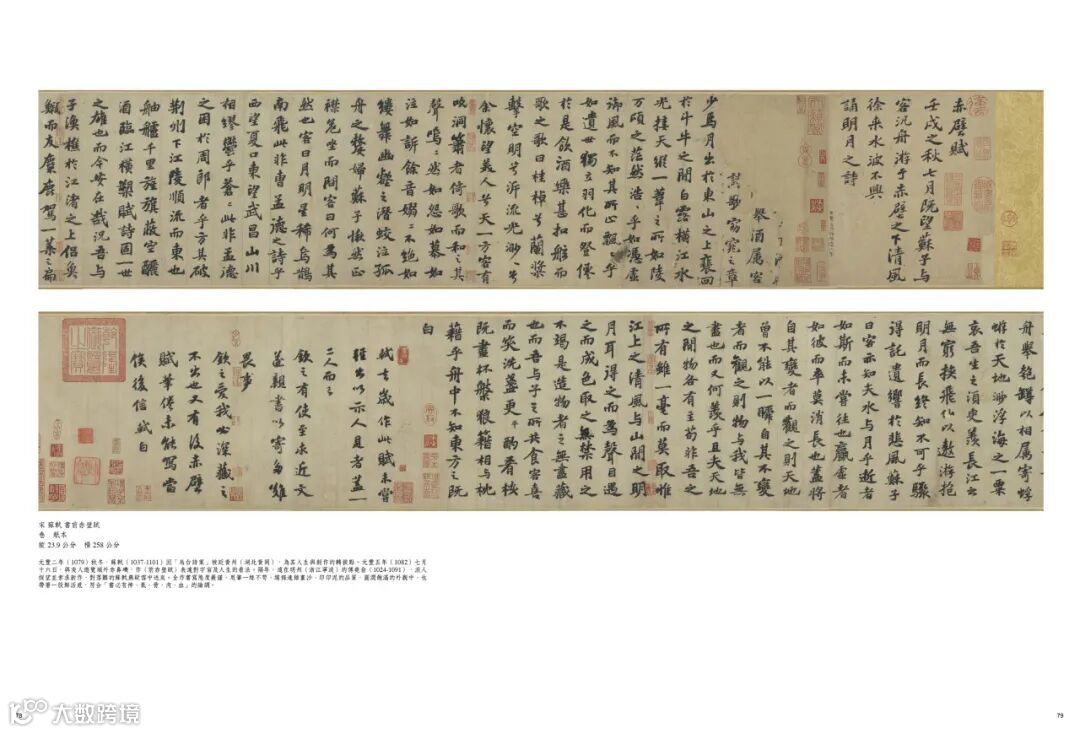 赤壁賦
壬戌之秋七月既望蘇子與
客泛舟游于赤壁之下清風
徐来水波不興
誦明月之詩
舉酒屬客
歌窈窕之章
少焉月出於東山之上裴回
於斗牛之間白露橫江水
光接天縱一葦之所如陵
萬頃之茫然浩〻乎如憑虛
御風而不知其所止飄〻乎
如遺世獨立羽化而登僊
於是飲酒樂甚扣舷而
歌之歌曰桂棹兮蘭槳
擊空明兮泝流光渺〻兮
余懷望美人兮天一方客有
吹洞簫者倚歌而和之其
聲嗚〻然如怨如慕如
泣如訴餘音嫋〻不絕如
縷舞幽壑之潛蛟泣孤
舟之嫠婦蘇子愀然正
襟危坐而問客曰何為其
然也客曰月明星稀烏鵲
南飛此非曹孟德之詩乎
西望夏口東望武昌山川
相繆鬱乎蒼〻此非孟德
之困於周郎者乎方其破
荊州下江陵順流而東也
舳艫千里旌旗蔽空釃
酒臨江橫槊賦詩固一世
之雄也而今安在哉況吾與
子漁樵於江渚之上侶魚
鰕而友麋鹿駕一葉之扁
舟舉匏罇以相屬寄蜉
蝣於天地渺浮海之一粟
哀吾生之須臾羨長江之
無窮挾飛仙以遨游抱
明月而長終知不可乎驟
得託遺響於悲風蘇子
曰客亦知夫水與月乎逝者
如斯而未嘗往也贏虛者
如彼而卒莫消長也蓋將
自其變者而觀之則天地
曾不能以一瞬自其不變
者而觀之則物與我皆無
盡也而又何羨乎且夫天地
之間物各有主苟非吾之
所有雖一毫而莫取惟
江上之清風與山間之明
月耳得之而為聲目遇
之而成色取之無禁用之
不竭是造物者之無盡藏
也而吾與子之所共食客喜
而笑洗盞更酌肴核
既盡杯盤狼籍相與枕
藉乎舟中不知東方之既
白
軾去歲作此賦未嘗
輕出以示人見者蓋一
二人而已
欽之有使至求近文
遂親書以寄多難
畏事
欽之愛我必深藏之
不出也又有後赤壁
賦筆倦未能寫當
俟後信軾白
宋 蘇軾 書前赤壁賦
卷 紙本
縱 23.9 公分 橫 258 公分
元豐二年（1079）秋冬，蘇軾（1037-1101）因「烏台詩案」被貶黃州（湖北黃岡），為其人生與創作的轉捩點。元豐五年（1082）七月
十六日，與友人遊覽城外赤鼻磯，作〈前赤壁賦〉表達對宇宙及人生的看法。隔年，遠在明州（浙江寧波）的傅堯俞（1024-1091），派人
79
大数跨境